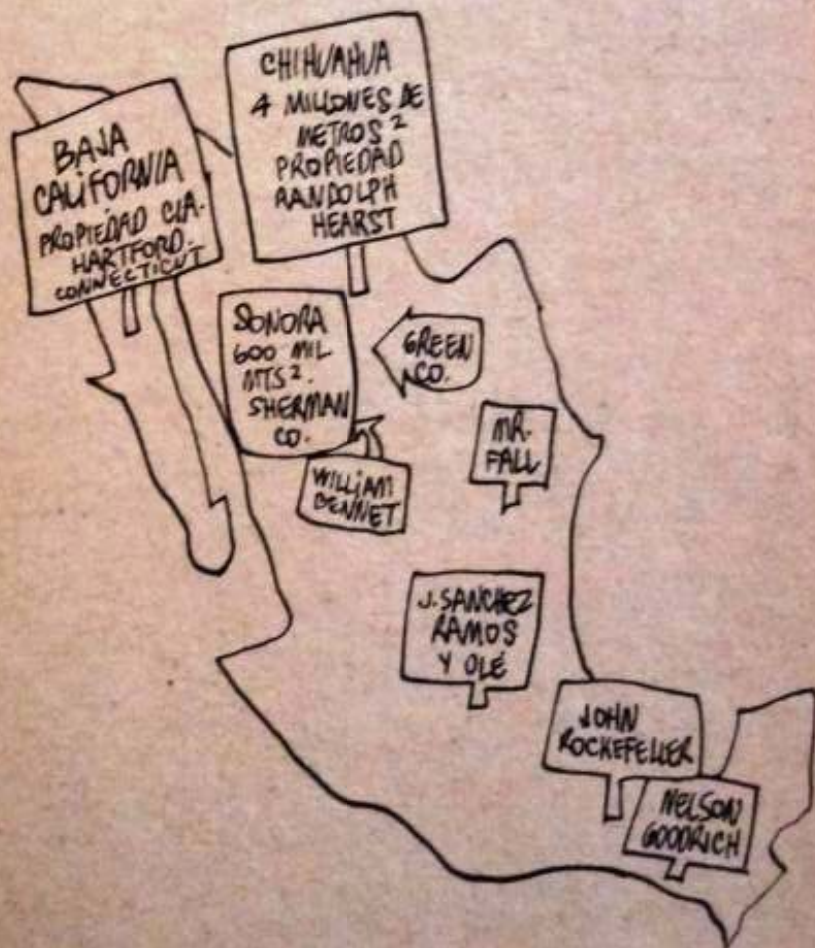 BAJA
CALIFORNIA
PROPIEDAD CIA.
HARTFORD.
CONNECTICUT
CHIHUAHUA
4 MILLONES DE
METROS 2
PROPIEDAD
RANDOLPH
HEARST
SONORA
600 MIL
MTS 2.
SHERMAN
CO.
GREEN
CO.
WILLIAM
BENNET
MR.
FALL
J. SANCHEZ
RAMOS
Y OLÉ
JOHN
ROCKEFELLER
NELSON
GOODRICH